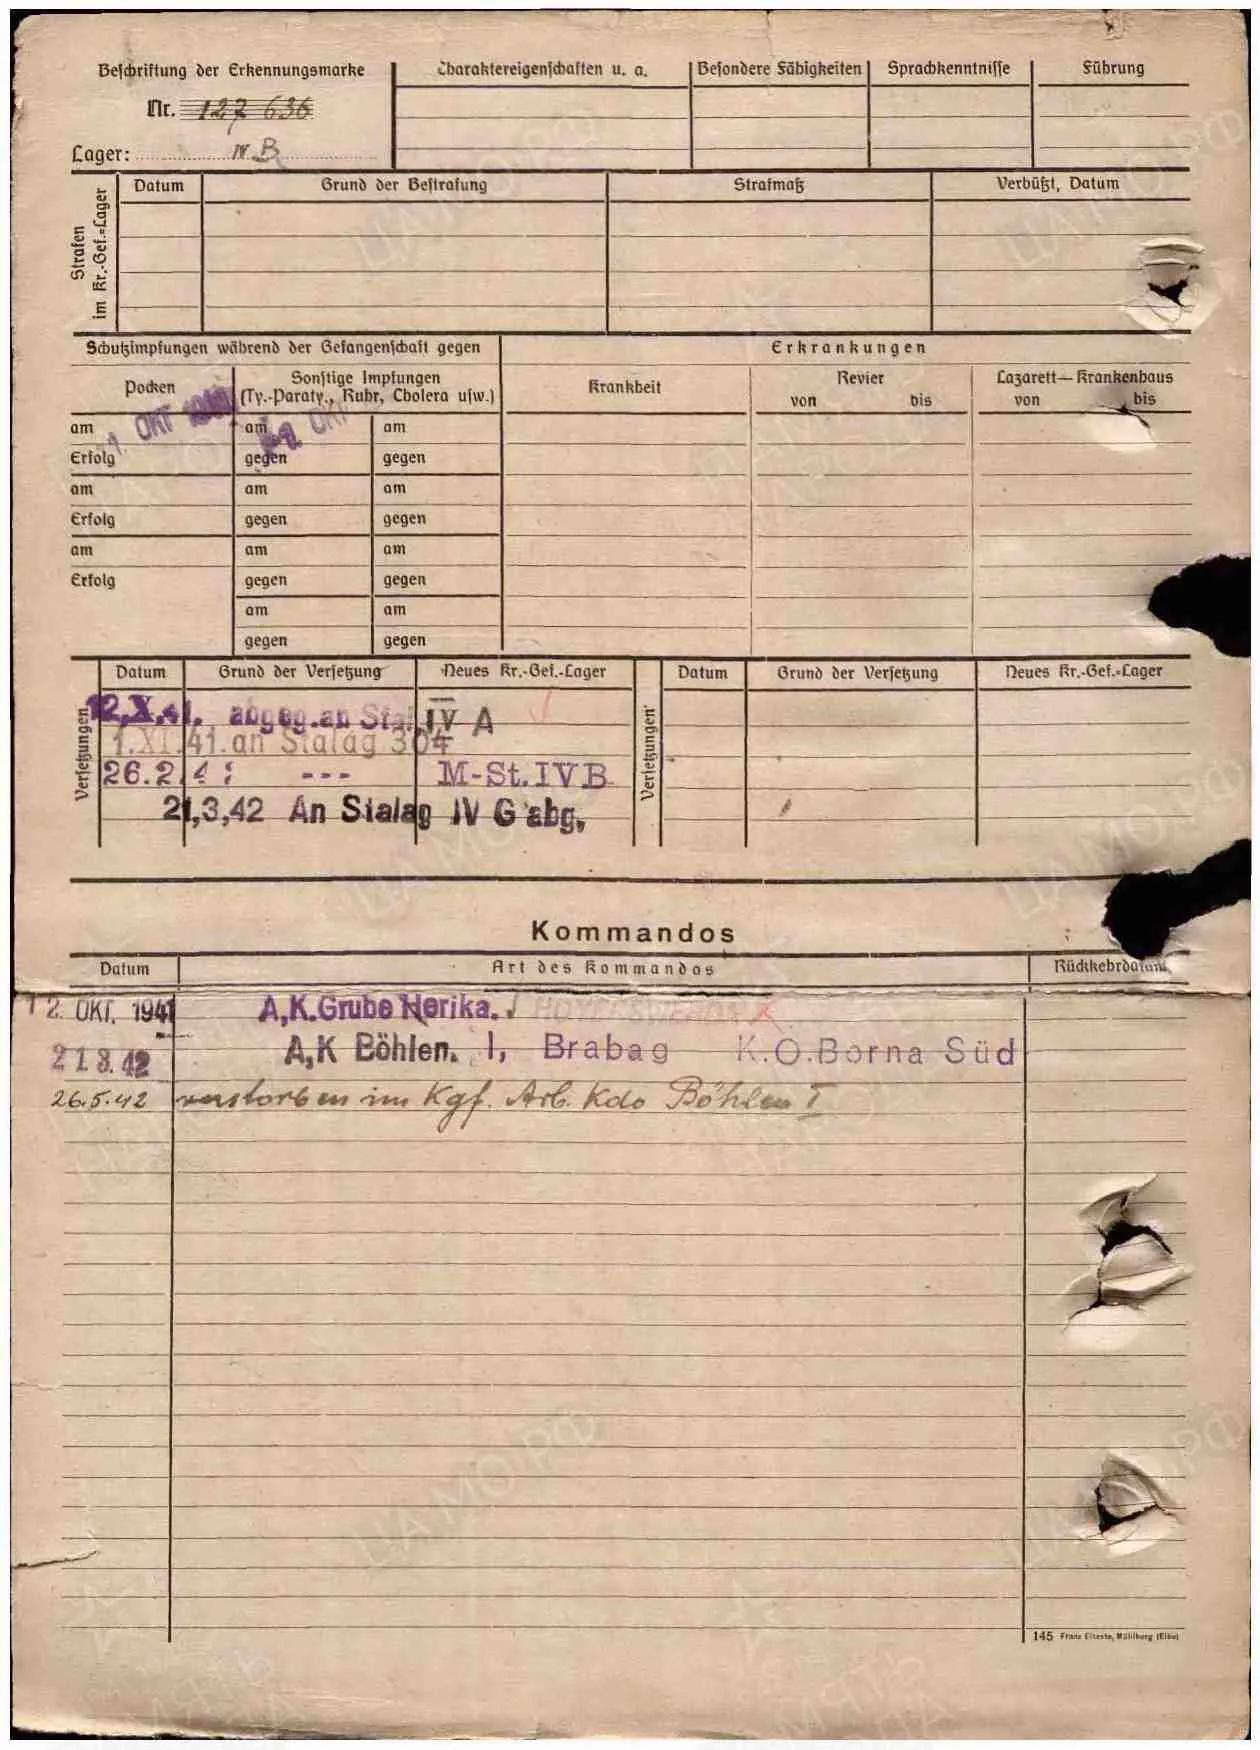 Beschriftung der Erkennungsmarke
Nr. 127 636
Lager: IV B
Charaktereigenschaften u. a.
Besondere Fähigkeiten
Sprachkenntnisse
Führung
Strafen im Kr.-Gef.=Lager
Datum
Grund der Bestrafung
Strafmaß
Verbüßt, Datum
Schutzimpfungen während der Gefangenschaft gegen
Erkrankungen
Pocken
Sonstige Impfungen
(Ty.-Paraty., Ruhr, Cholera usw.)
Krankheit
Revier
von bis
Lazarett—Krankenhaus
von bis
am OKT am OKT am
Erfolg gegen gegen
am am am
Erfolg gegen gegen
am am am
Erfolg gegen gegen
am am
gegen gegen
Versetzungen
Datum Grund der Versetzung Neues Kr.-Gef.-Lager
12.X.41. abgeg.an Stal. IV A
1.XI.41.an Stalag 304
26.2.4 --- M-St.IVB
21,3,42 An Stalag IV G abg,
Versetzungen
Datum Grund der Versetzung Neues Kr.-Gef.=Lager
Kommandos
Datum Art des Kommandos Rückkehrdatum
12. OKT. 1941 A,K.Grube Herika. HOYERSWERDA
21 3. 42 A,K Böhlen. I, Brabag K.O.Borna Süd
26.5.42 verstorben im Kgf. Arb. Kdo Böhlen I
145 Franz Elteste, Mühlberg (Elbe)
ЦА МО РФ
ЦА МО РФ
ЦА МО РФ
ЦА МО РФ
ЦА МО РФ
ЦА МО РФ